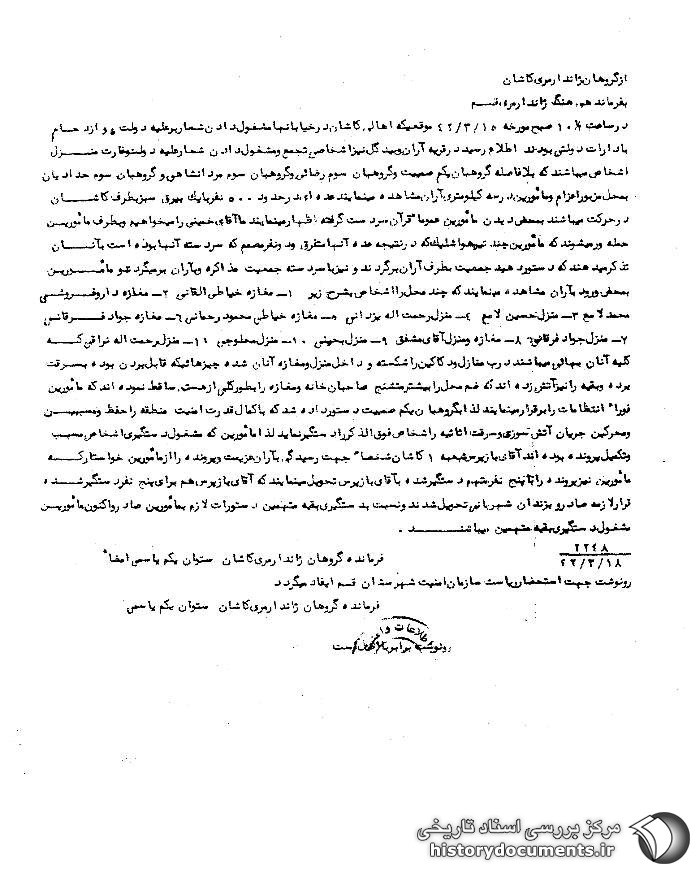 از گروهان ژاندارمری کاشان
بفرماندهی هنگ ژاندارمری قم
در ساعت ۱۰ صبح مورخه ۴۲/۳/۱۵ موقعیکه اهالی کاشان در خیابانها مشغول دادن شعار بر علیه دولت و ازدحام
بادارات دولتی بودند اطلاع رسید در قریه آران و بیدگل نیز اشخاصی تجمع و مشغول دادن شعار علیه دولت و غارت منزل
اشخاص میباشند که بلافاصله گروهبان یکم صمیت و گروهبان سوم رضائی و گروهبان سوم مردانشاهی و گروهبان سوم حدادیان
بمحل مزبور اعزام و مأمورین در سه کیلومتری آران مشاهده مینمایند عده ای در حدود ۵۰۰ نفر با یک بیرق سبز بطرف کاشان
در حرکت میباشند بمحض دیدن مأمورین عموما قرآن سر دست گرفته اظهار مینمایند ما آقای خمینی را میخواهیم و بطرف مأمورین
حمله ور میشوند که مأمورین چند تیر هوا شلیک که در نتیجه عده آنها متفرق و دو نفر معمم که سر دسته آنها بوده است بآنان
تذکر میدهند که دستور دهید جمعیت بطرف آران برگردند و نیز با سر دسته جمعیت مذاکره و بآران برمیگردند و مأمورین
بمحض ورود بآران مشاهده مینمایند که چند محل را اشخاص بشرح زیر ۱- مغازه خیاطی القانی ۲- مغازه داروفروشی
محمد لامع ۳- منزل حسین لامع ۴- منزل رحمت اله یزدانی ۵- مغازه خیاطی محمود رحمانی ۶- مغازه جواد فرقانی
۷- منزل جواد فرقانی ۸- مغازه و منزل آقای مشفق ۹- منزل یحیئی ۱۰- منزل معلوجی ۱۱- منزل رحمت اله نراقی که
کلیه آنان بهائی میباشند درب منازل و دکاکین را شکسته و داخل منزل و مغازه آنان شده چیزهائیکه قابل بردن بوده بسرقت
برده و بقیه را نیز آتش زده اند که غم محل را بیشتر متشنج صاحبان خانه و مغازه را بطور کلی از هستی ساقط نموده اند که مأمورین
فورا انتظامات را برقرار مینمایند لذا بگروهبان یکم صمیت دستور داده شد که با کمال قدرت امنیت منطقه را حفظ و مسببین
و محرکین جریان آتش سوزی و سرقت اثاثیه را شخاص فوق الذکر را دستگیر نماید لذا مأمورین که مشغول دستگیری اشخاص مسبب
و تکمیل پرونده بوده اند آقای بازپرس شعبه ۱ کاشان شخصا جهت رسیدگی بآران عزیمت و پرونده را از مأمورین خواستار که
مأمورین نیز پرونده را با پنج نفر متهم دستگیر شده بآقای بازپرس تحویل مینمایند که آقای بازپرس هم برای پنج نفر دستگیر شده
قرار لازمه صادر و بزندان شهربانی تحویل شدند و نسبت بدستگیری بقیه متهمین دستورات لازم بمأمورین صادر و اکنون مأمورین
مشغول دستگیری بقیه متهمین میباشند.
۲۲۴۸
۴۲/۳/۱۸
فرمانده گروهان ژاندارمری کاشان ستوان یکم یاسمی امضاء
رونوشت جهت استحضار ریاست سازمان امنیت شهرستان قم ایفاد میگردد
فرمانده گروهان ژاندارمری کاشان ستوان یکم یاسمی
اطلاعات و
رونوشت برابر با اصل است
مرکز بررسی اسناد تاریخی
historydocuments.ir